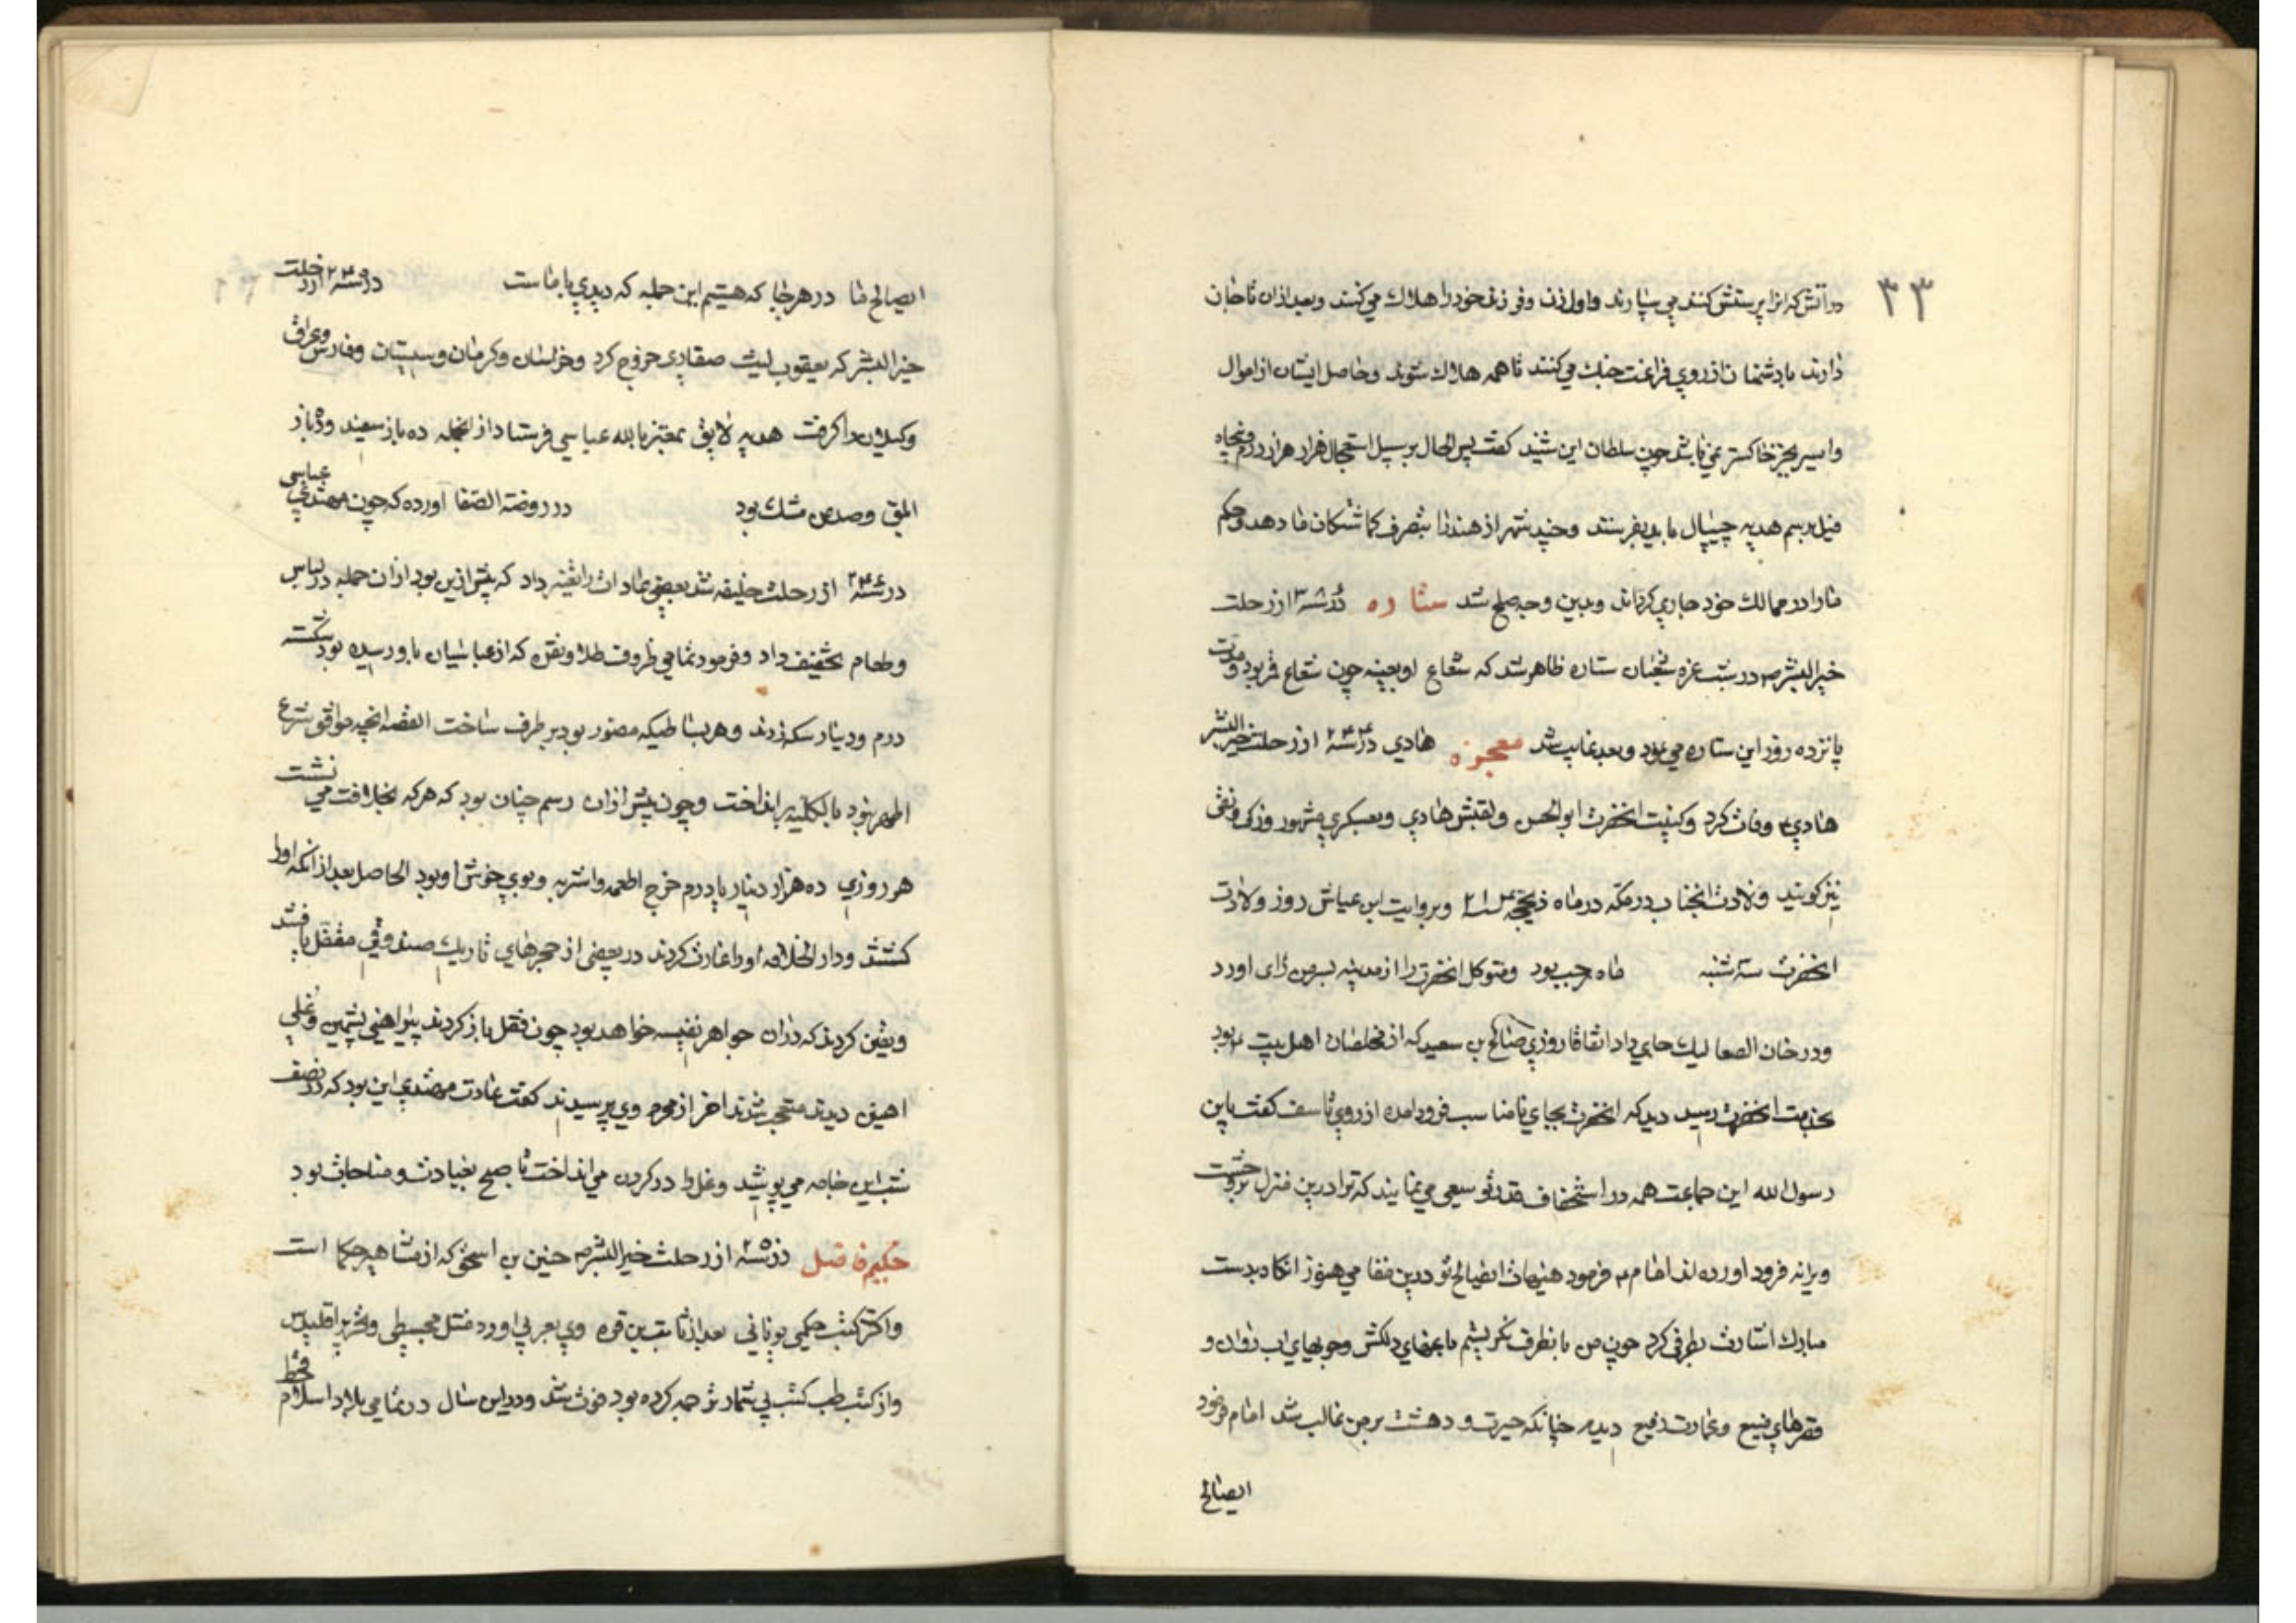 ۳۳
در آتش که انرا پرستش کنند می سپارند و اول زن و فرزند خود را هلاک می کنند و بعد ازان تا جان
دارند با دشمنان از روی فراغت جنک می کنند تا همه هلاک شوند و حاصل ایشان از اموال
و اسیر بجز خاکستر نمی باشد چون سلطان این شنید کفت پس الحال بر سبیل استعجال هزار هزار درم و پنجاه
فیل برسم هدیه چیپال باید بفرستد و چند شهر از هند را بتصرف کماشتکان ما دهد و حکم
ما را در ممالک خود جاری کرداند و بدین وجه صلح شد ستاره در سنه از رحلت
خیر البشر ص در شب غره شعبان ستاره ظاهر شد که شعاع او بعینه چون شعاع قمر بود و مدت
پانزده روز این ستاره می بود و بعد غایب شد معجزه هادی در سنه ۲۴۴ از رحلت خیر البشر
هادی ع وفات کرد و کنیت انحضرت ابو الحسن و لقبش هادی و بعسکری مشهور و زکی و نقی
نیز کویند ولادت انجناب در مکه در ماه ذیحجه و بروایت ابن عیاش روز ولادت
انحضرت سه شنبه ماه رجب بود و متوکل انحضرت را از مدینه بسر من رای اورد
و در خان الصعالیک جای داد اتفاقا روزی صالح بن سعید که از مخلصان اهل بیت ع بود
بخدمت انحضرت رسید دید که انحضرت بجای نامناسب فرود امده از روی تاسف کفت یابن
رسول الله این جماعت همه در استخفاف قدر تو سعی می نمایند که ترا درین منزل پر وحشت
ویرانه فرود اورده اند امام ع فرمود هیهات ایصالح تو درین مقامی هنوز انکاه بدست
مبارک اشارت بطرفی کرد چون من بانطرف نکریستم باغهای دلکش و جویهای اب روان و
قصرهای وسیع و عمارت رفیع دیدم چنانکه حیرت و دهشت بر من غالب شد امام فرمود
ایصالح
ایصالح ما در هر جا که هستیم این جمله که دیدی با ماست در سنه ۲۴۵ از رحلت
خیر البشر که یعقوب لیث صفاری خروج کرد و خراسان و کرمان و سیستان و فارس و عراق
و کیلان را کرفت هدیه لایق بمعتز بالله عباسی فرستاد از انجمله ده باز سفید و ده باز
ابلق و صد من مشک بود در روضة الصفا اورده که چون مهتدی عباسی
در سنه ۲۴۶ از رحلت خلیفه شد بعضی عادات را تغییر داد که پیش ازین بود ازان جمله در لباس
و طعام تخفیف داد و فرمود تمامی ظروف طلا و نقره که از عباسیان باو رسیده بود شکسته
درم و دینار سکه زدند و هر بساطیکه مصور بود بر طرف ساخت القصه انچه موافق شرع
اطهر نبود بالکلیه بر انداخت و چون پیش ازان رسم چنان بود که هر که بخلافت می نشست
هر روزی ده هزار دینار یا درم خرج اطعمه و اشربه و بوی خوش او بود الحاصل بعد از انکه اورا
کشتند و دار الخلافه اورا غارت کردند در بعضی از حجرهای تاریک صندوقی مقفل یافتند
و یقین کردند که دران جواهر نفیسه خواهد بود چون قفل باز کردند پیراهنی پشمین و غلی
اهنین دیدند متعجب شدند اخر از محرم وی پرسیدند کفت عادت مهتدی این بود که در نصف
شب این جامه می پوشید و غل را در کردن می انداخت تا صبح بعبادت و مناجات بود
حکیم فاضل در سنه ۲۵۰ از رحلت خیر البشر ص حنین بن اسحق که از مشاهیر حکما است
و اکثر کتب حکمی یونانی بعد از ثابت بن قره وی بعربی اورد مثل مجسطی و تحریر اقلیدس
و از کتب طب کتب بی شمار ترجمه کرده بود فوت شد و در این سال در تمامی بلاد اسلام قحط